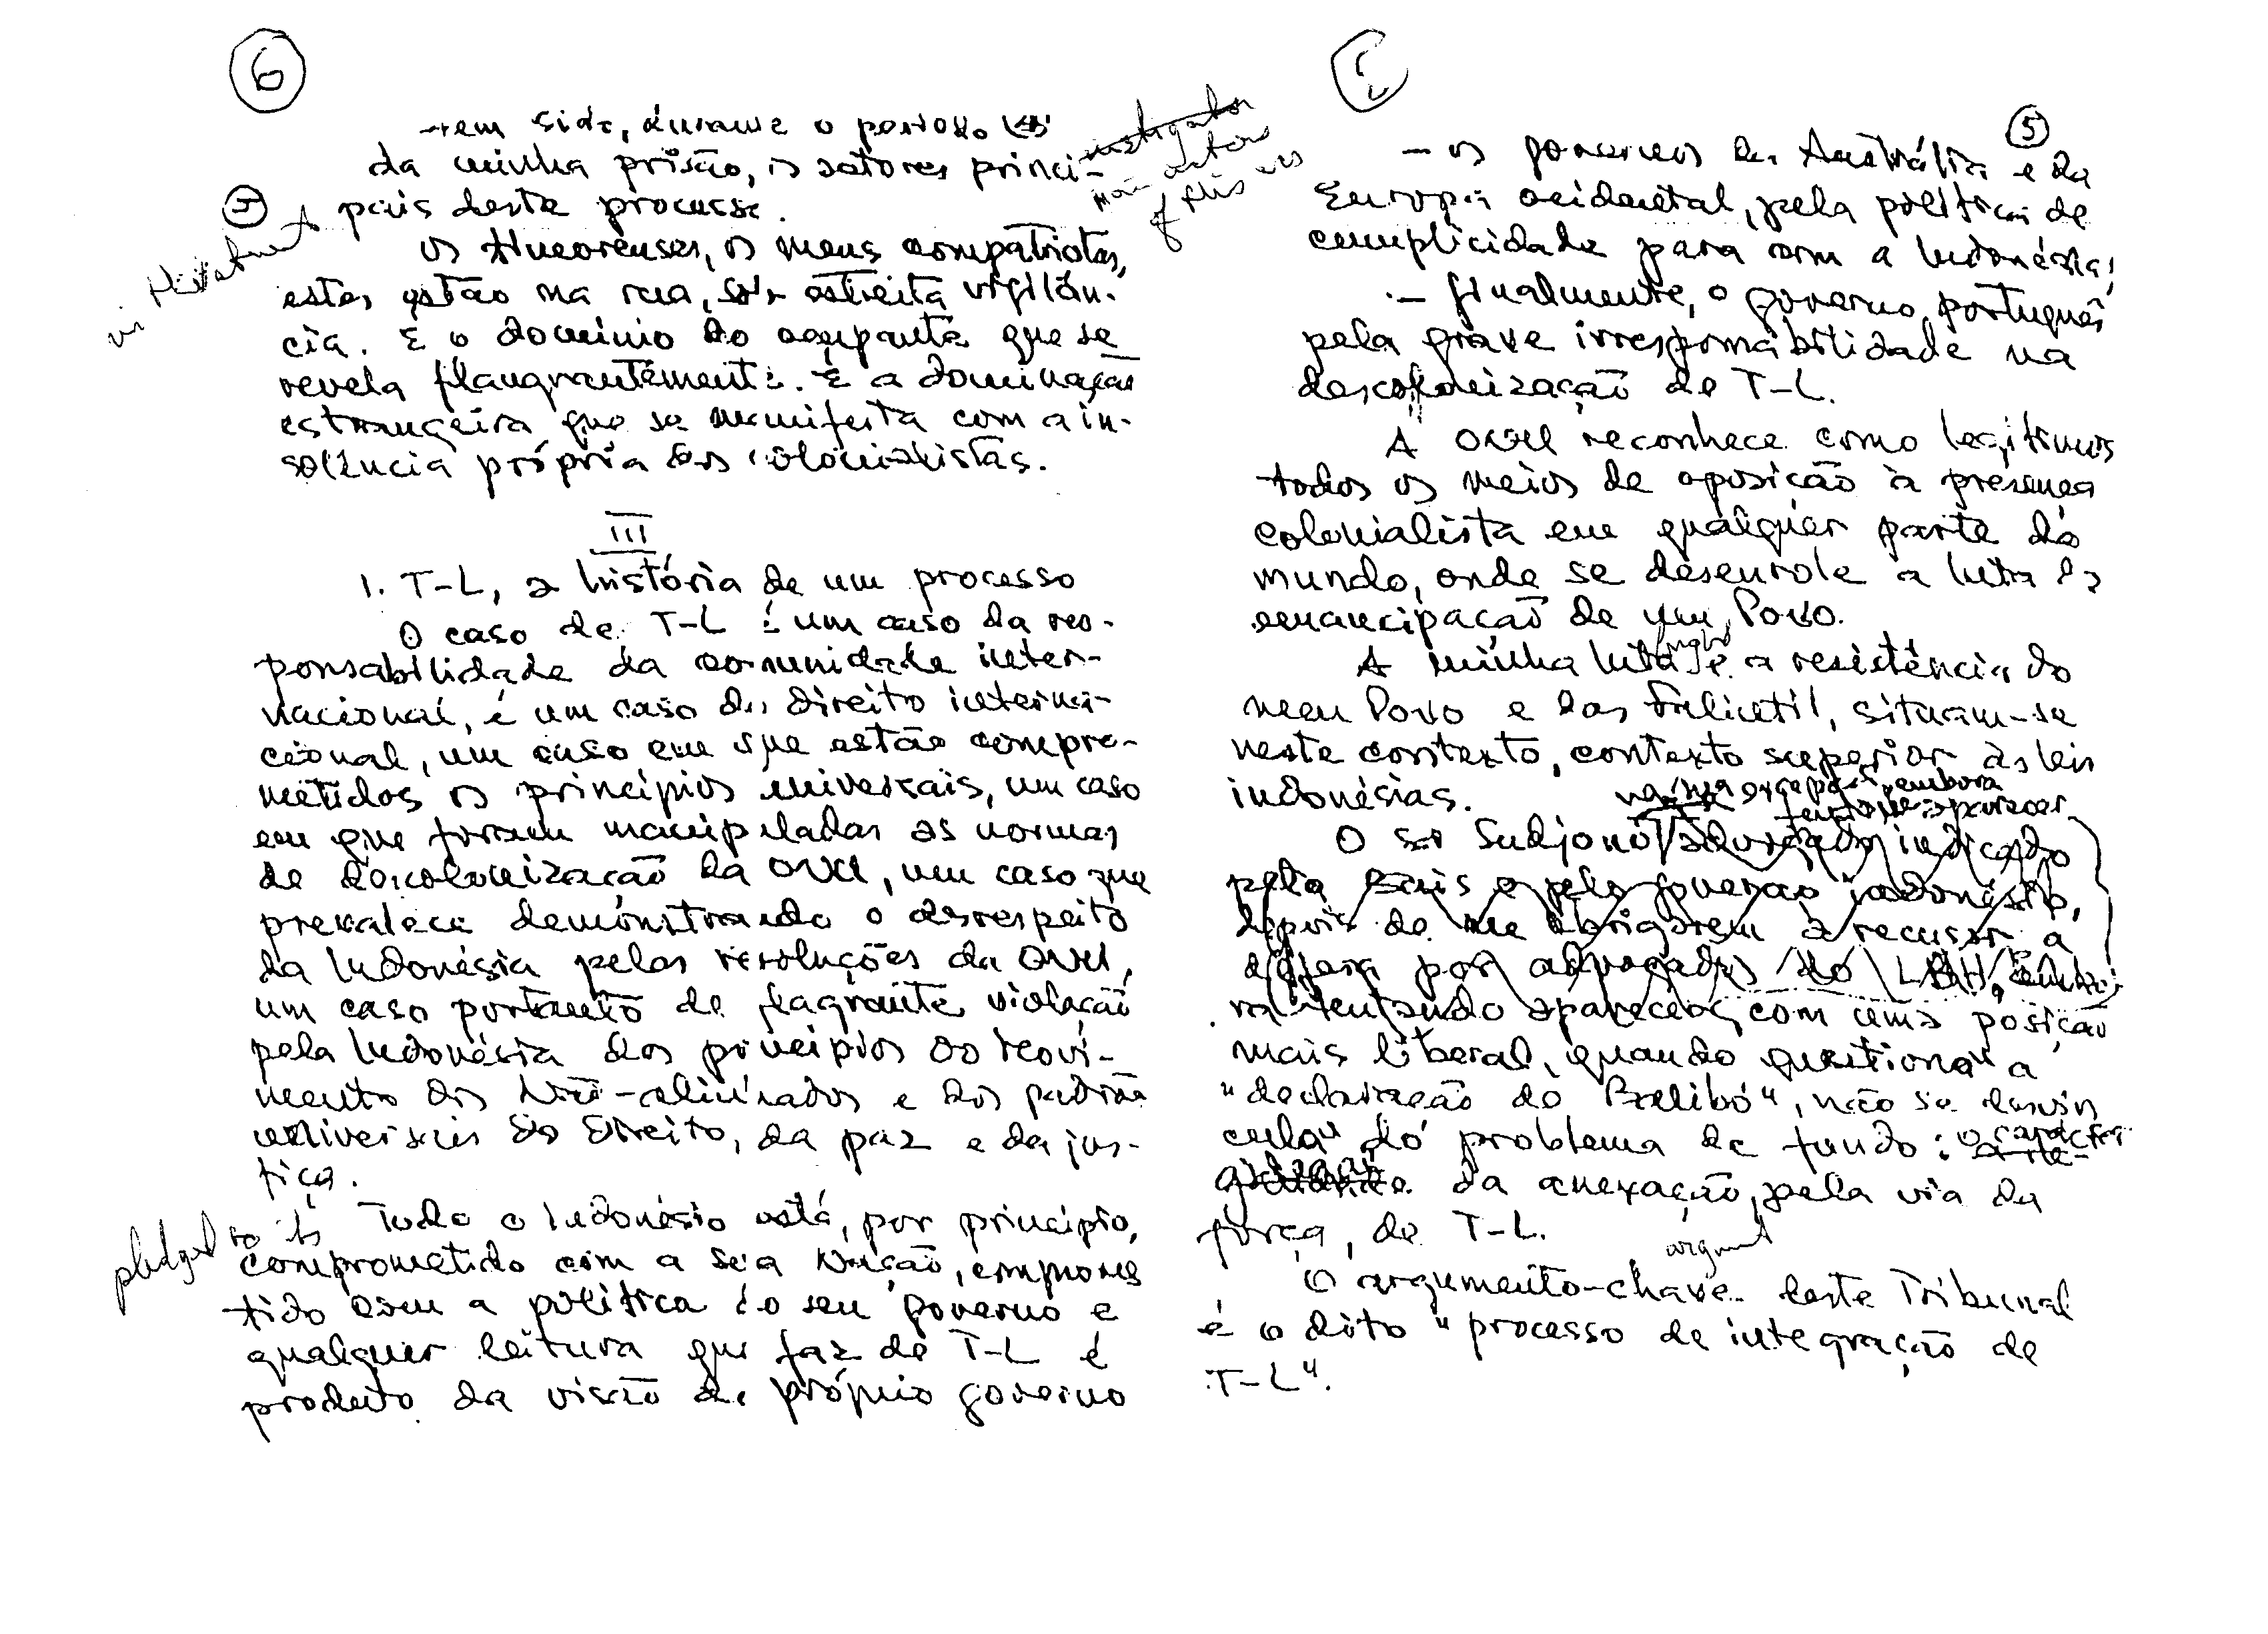 6
têm sido, durante o período
da minha prisão, os actores princi-
pais deste processo.
Os timorenses, os meus compatriotas,
estes estão na rua, sob estreita vigilân-
cia. É o domínio do ocupante que se
revela flangrantemente. É a dominação
estrangeira que se manifesta com a in-
solência própria dos colonialistas.
III
1. T-L, a história de um processo
O caso de T-L é um caso da res-
ponsabilidade da comunidade inter-
nacional, é um caso de direito interna-
cional, um caso em que estão compro-
metidos os princípios universais, um caso
em que foram manipuladas as normas
de descolonização da ONU, um caso que
prevalece demonstrando o desrespeito
da Indonésia pelas resoluções da ONU,
um caso portanto de flagrante violação
pela Indonésia dos princípios do Movi-
mento dos Não-alinhados e dos padrões
universais do Direito, da paz e da jus-
tiça.
pledged to its
Todo o Indonésio está, por princípio,
comprometido com a sua Nação, comprome
tido com a política do seu governo e
qualquer leitura que faz de T-L é
produto da visão do próprio governo
main actors
of this
5
- os governos da Austrália e da
Europa ocidental, pela política de
cumplicidade para com a Indonésia;
- finalmente, o governo português
pela grave irresponsabilidade na
descolonização de T-L.
A ONU reconhece como legítimos
todos os meios de oposição à presença
colonialista em qualquer parte do
mundo, onde se desenrole a luta da
emancipação de um Povo.
A minha luta e a resistência do
meu Povo e das Falintil, situam-se
neste contexto, contexto superior às leis
indonésias.
embora
tentando aparecer
O sr Sudjono advogado indicado
pela Bais e pelo governo indonésio,
depois de me obrigarem a recusar a
defesa por advogados do LBH, embo
ra tentando aparecer com uma posição
mais liberal, quando questiona a
"declaração de Balibó", não se desvin
cula do problema de fundo: o carácter
da anexação, pela via da
força, de T-L.
argument
O argumento-chave deste Tribunal
é o dito "processo de integração de
T-L".